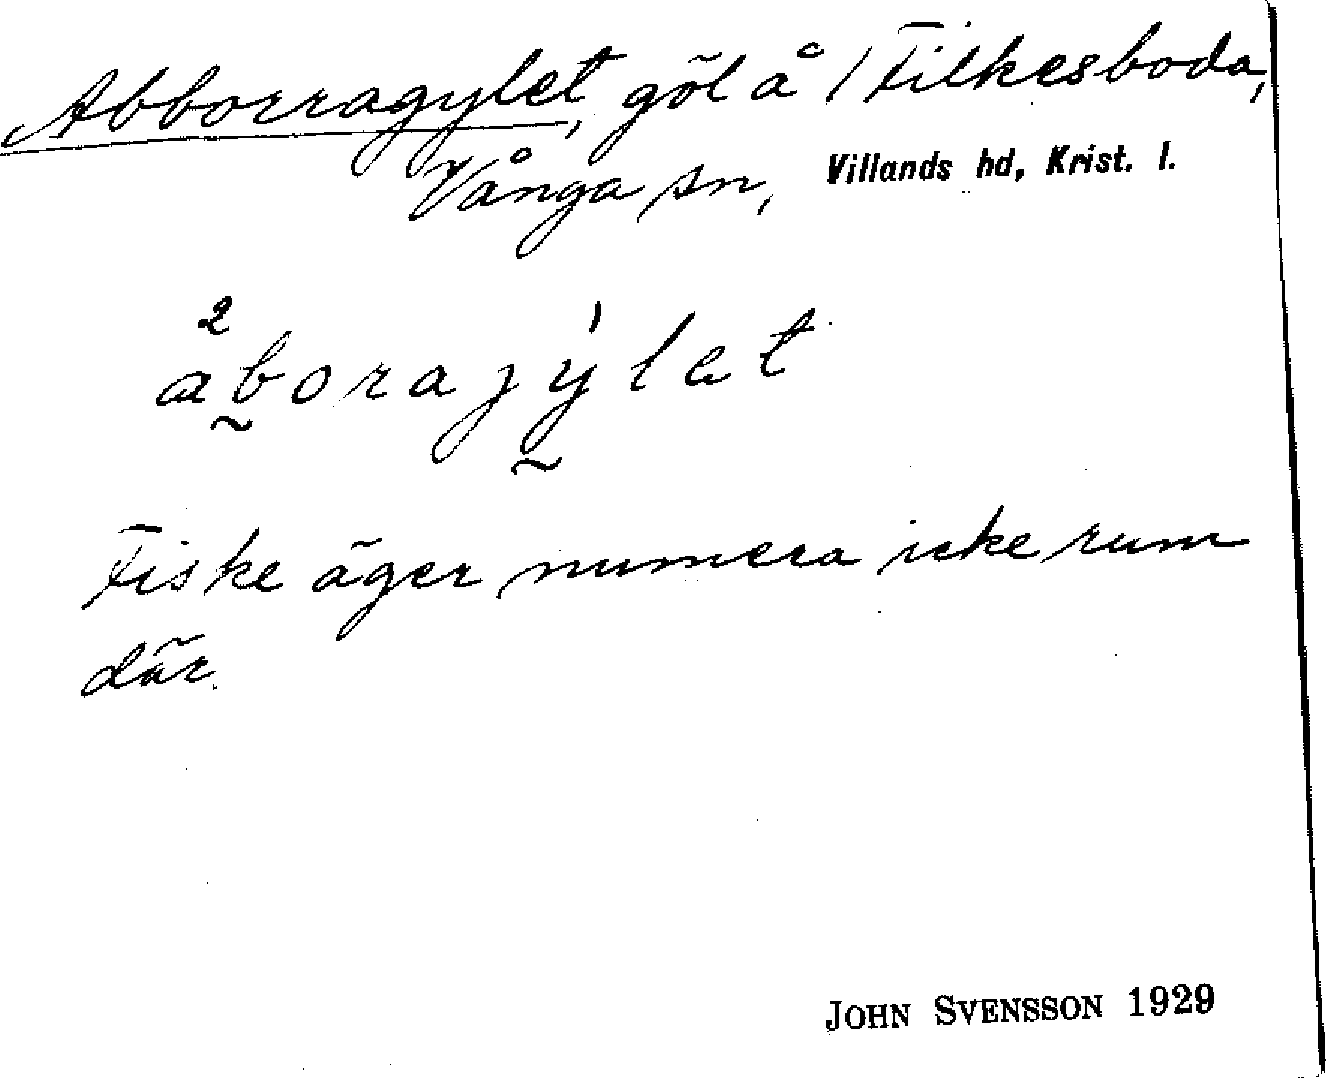 Abborragylet, göl å /Filkesboda,
Vånga sn, Villands hd, Krist. l.
²aborajýlet
Fiske äger numera icke rum
där.
JOHN SVENSSON 1929